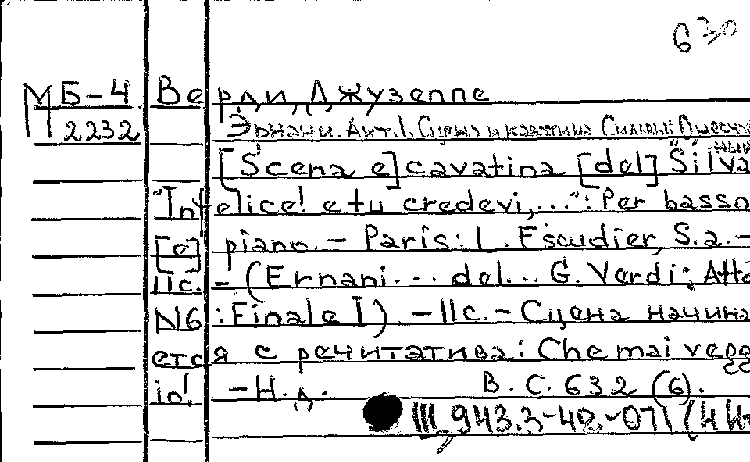 630
МБ-4 Верди, Джузеппе
2232 Эрнани. Акт. I. Сцена и каватина Сильвы
[Scena e] cavatina [del] Silva
"Infelice! e tu credevi,...": Per basso
[e] piano. - Paris: L. Escudier, S.a. -
11с. - (Ernani... del... G. Verdi: Atto
N6: Finale I). - 11с. - Сцена начина
ется с речитатива: Che mai vegg
io! - Н.д. В.С. 632 (6).
III 943.3-40.-071